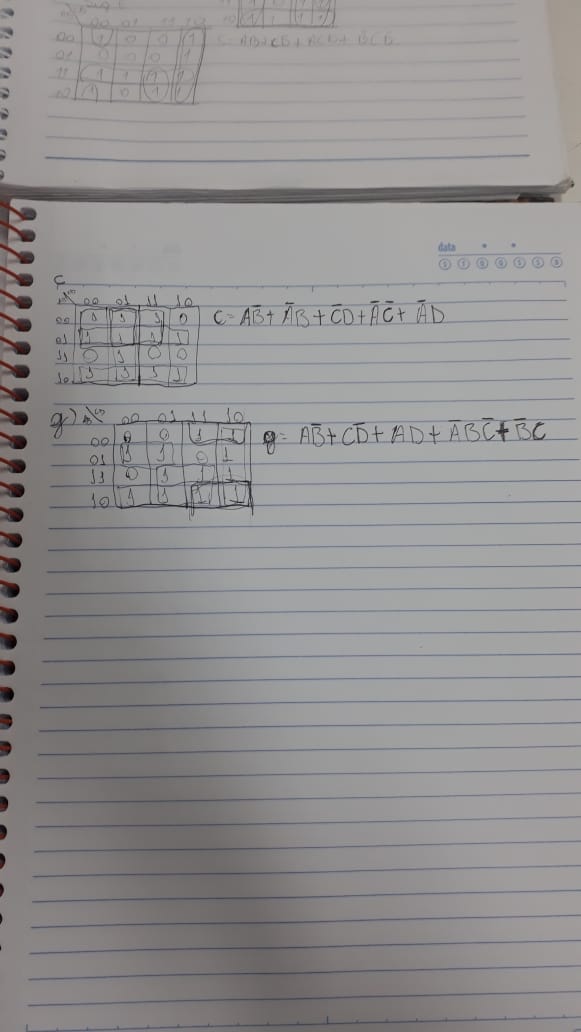 00 01 11 10
00 1 0 0 1
01 0 0 0 1
11 1 1 1 1
10 1 0 1 1
data
c
00 01 11 10
00 1 1 1 0
01 1 1 1 1
11 0 1 0 0
10 1 1 1 1
C = AB̅ + A̅B + C̅D + A̅C̅ + A̅D
g)
00 01 11 10
00 0 0 1 1
01 1 1 0 1
11 0 1 1 1
10 1 1 1 1
g = AB̅ + CD̅ + AD + A̅BC̅ + B̅C